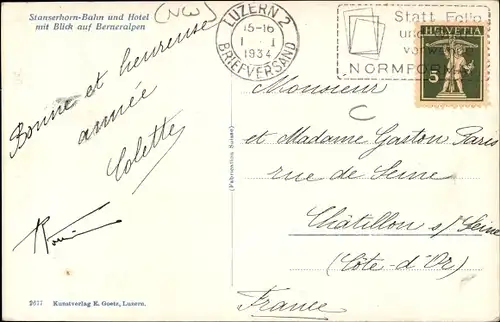 Stanserhorn-Bahn und Hotel
mit Blick auf Berneralpen
(NW)
LUZERN 2
15-16
1 1
1934
BRIEFVERSAND
Statt Folio
NORMFOR
HELVETIA
5
Bonne et heureuse
année
Colette
Monsieur
et Madame Gaston Paris
rue de Seine
Châtillon s/Seine
(Côte-d'Or)
France
(Fabrication Suisse)
9677 Kunstverlag E. Goetz, Luzern.